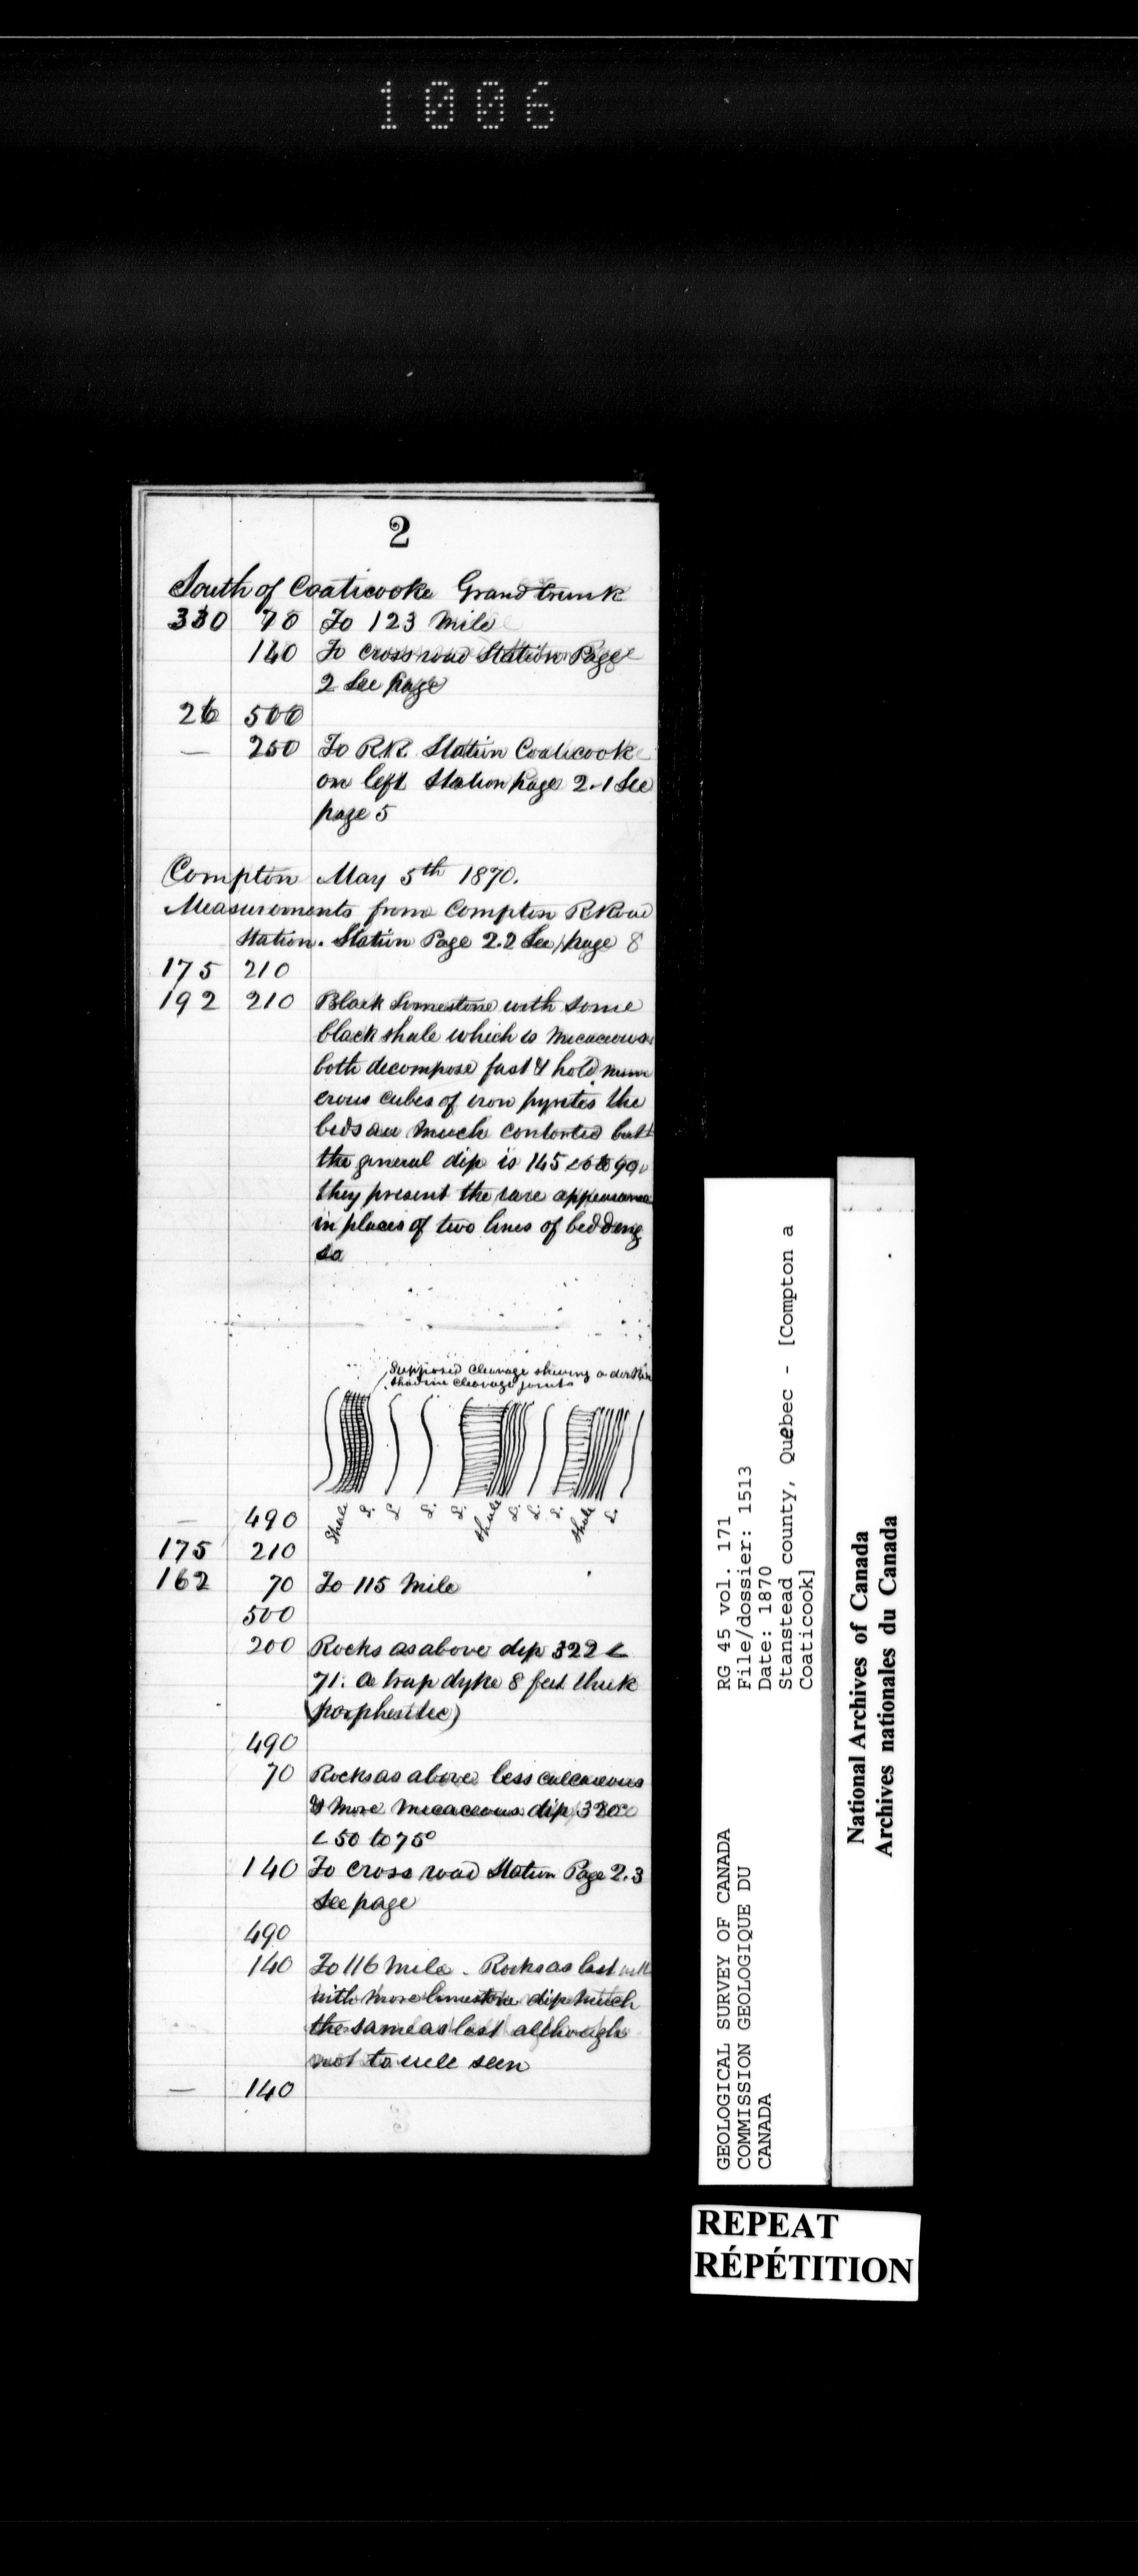 1006
2
South of Coaticooke Grand trunk
330 70 To 123 Mile
140 To cross road Station Page
2 See page
26 500
— 250 To R.R. Station Coaticook
on left Station page 2.1 See
page 5
Compton May 5th 1870.
Measurements from Compton R Road
Station. Station Page 2.2 See page 8
175 210
192 210 Black limestone with some
black shale which is micaceous
both decompose fast & hold num
erous cubes of iron pyrites the
beds are much contorted but
the general dip is 145 < to 90
they present the rare appearance
in places of two lines of bedding
so
Supposed cleavage shewing a
cleavage joints
Shale L. L. L. L. Shale L. L. L. Shale L.
— 490
175 210
162 70 To 115 Mile
500
200 Rocks as above dip 322 <
71. a trap dyke 8 feet thick
490
70 Rocks as above less calcareous
& more micaceous dip 320
< 50 to 75°
140 To cross road Station Page 2.3
See page
490
140 To 116 mile. Rocks as last
with more limestone dip much
the same as last although
not to well seen
— 140
GEOLOGICAL SURVEY OF CANADA
COMMISSION GEOLOGIQUE DU
CANADA
RG 45 vol. 171
File/dossier: 1513
Date: 1870
Stanstead county, Quebec - [Compton a
Coaticook]
National Archives of Canada
Archives nationales du Canada
REPEAT
RÉPÉTITION